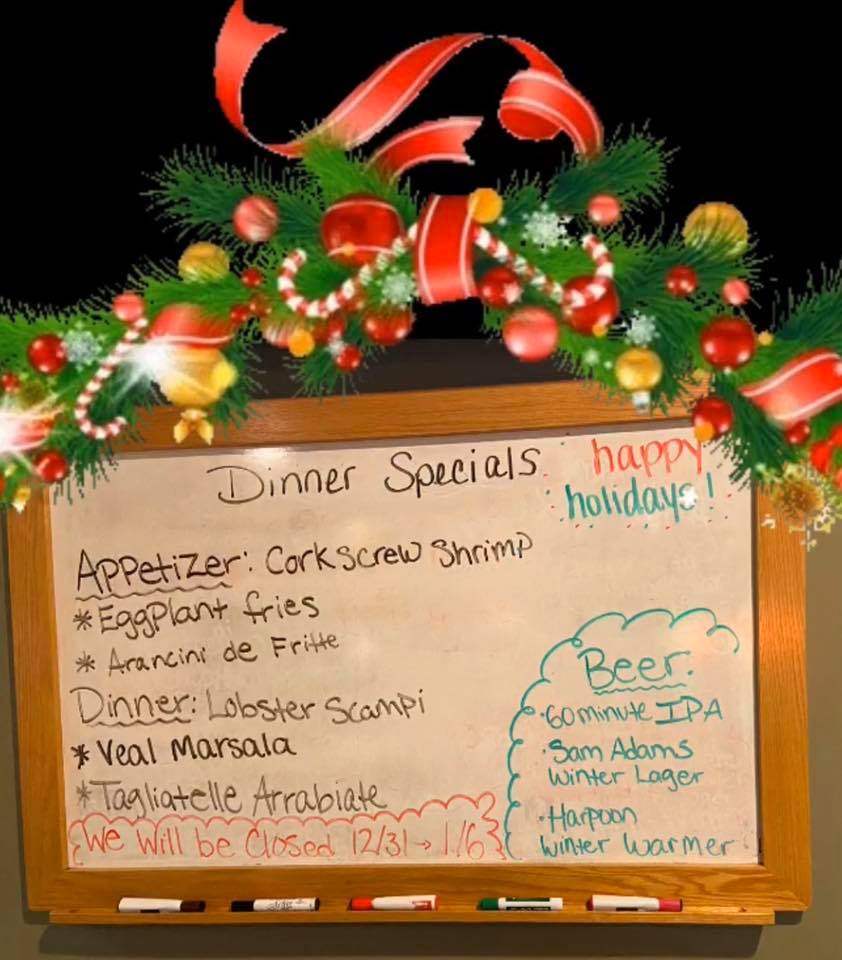 Dinner Specials
happy
holidays!
Appetizer: Corkscrew Shrimp
* Eggplant fries
* Arancini de Fritte
Dinner: Lobster Scampi
* Veal Marsala
* Tagliatelle Arrabiate
We Will be Closed 12/31 → 1/6
Beer:
· 60 minute IPA
· Sam Adams
Winter Lager
· Harpoon
Winter Warmer